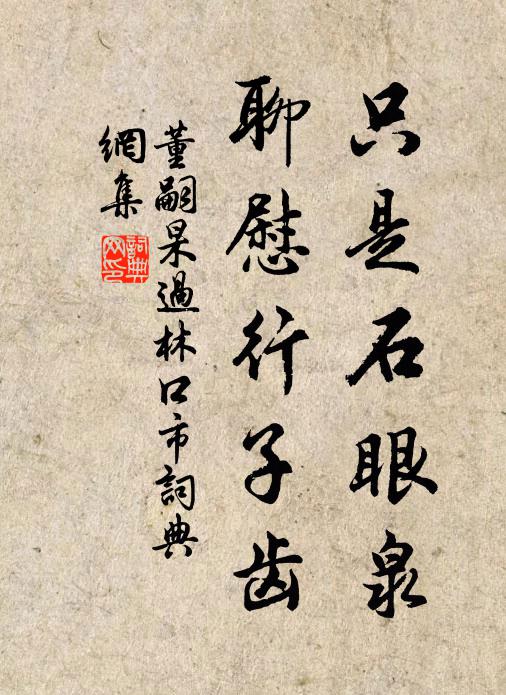 只是石眼泉
聊慰行子齿
董嗣杲過林口市詞典
網集
詞典网印